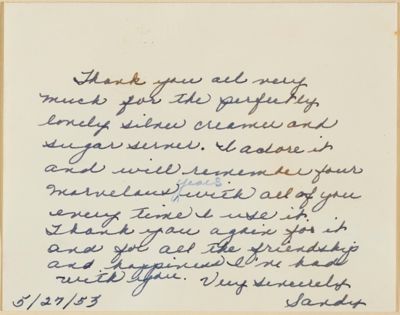 Thank you all very
much for the perfectly
lovely silver creamer and
sugar server. I adore it
and will remember four
years
marvelous with all of you
every time I use it.
Thank you again for it
and for all the friendship
and happiness I've had
with you. Very sincerely
5/27/53 Sandy